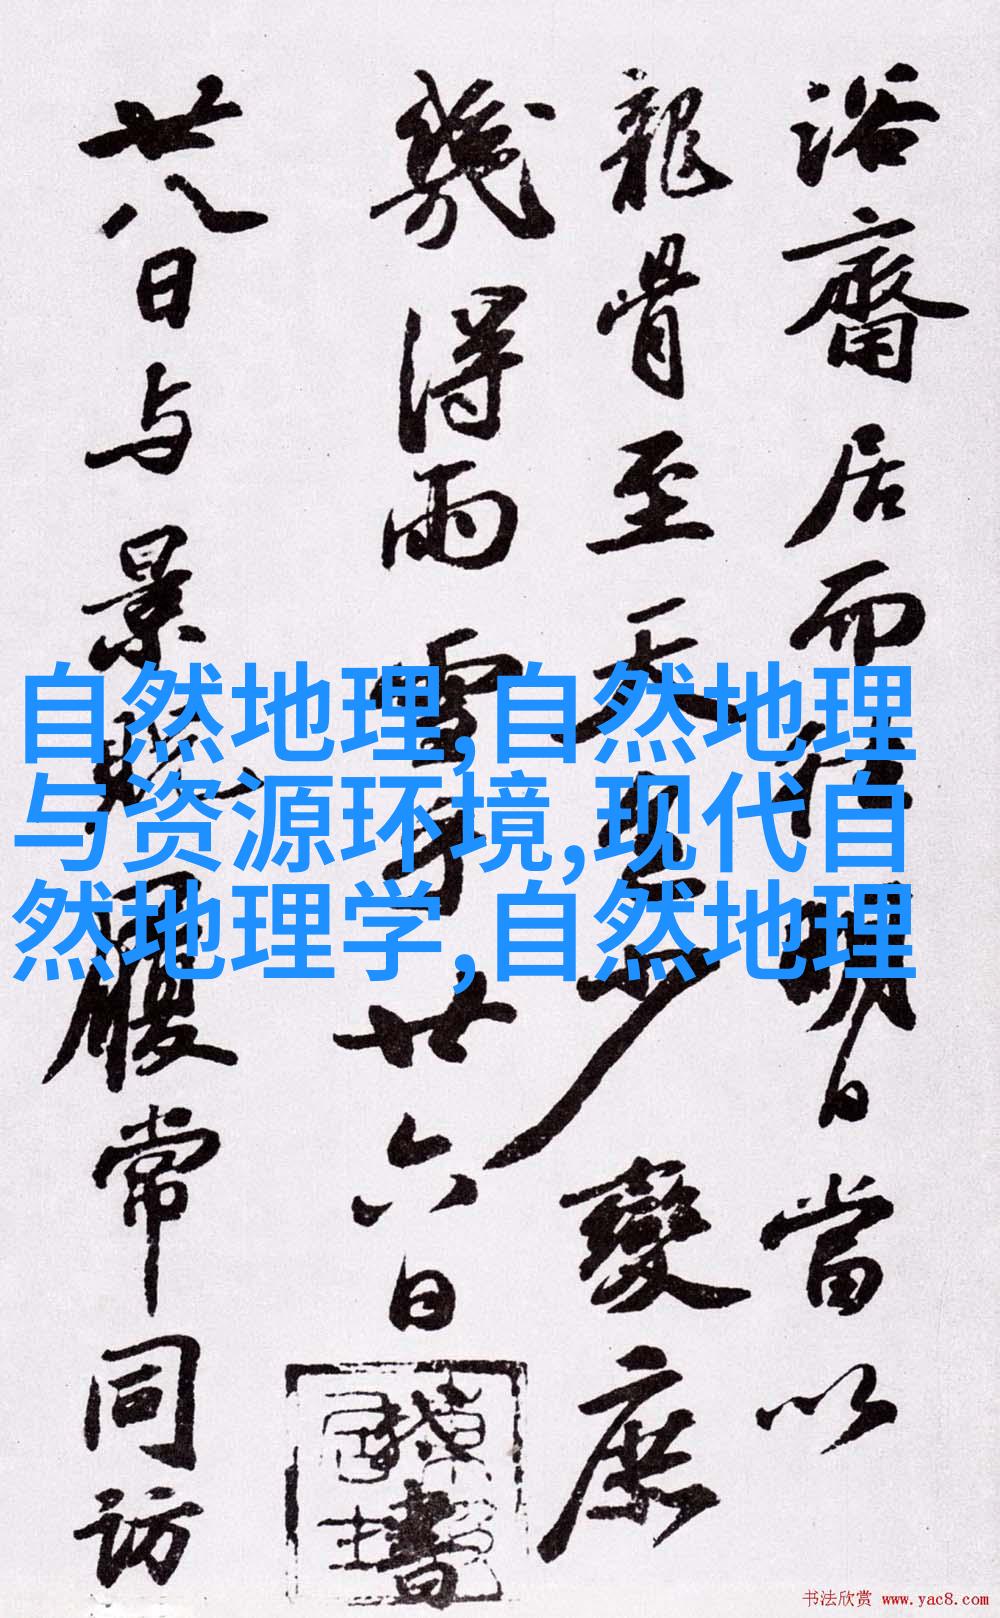 浴齋居而
明日當以
龍骨至天
少變庶
幾得雨雪
廿六日
書
廿八日与景
同
常同訪
自然地理,自然地理
与资源环境,现代自
然地理学,自然地理
书法欣赏 www.yac8.com